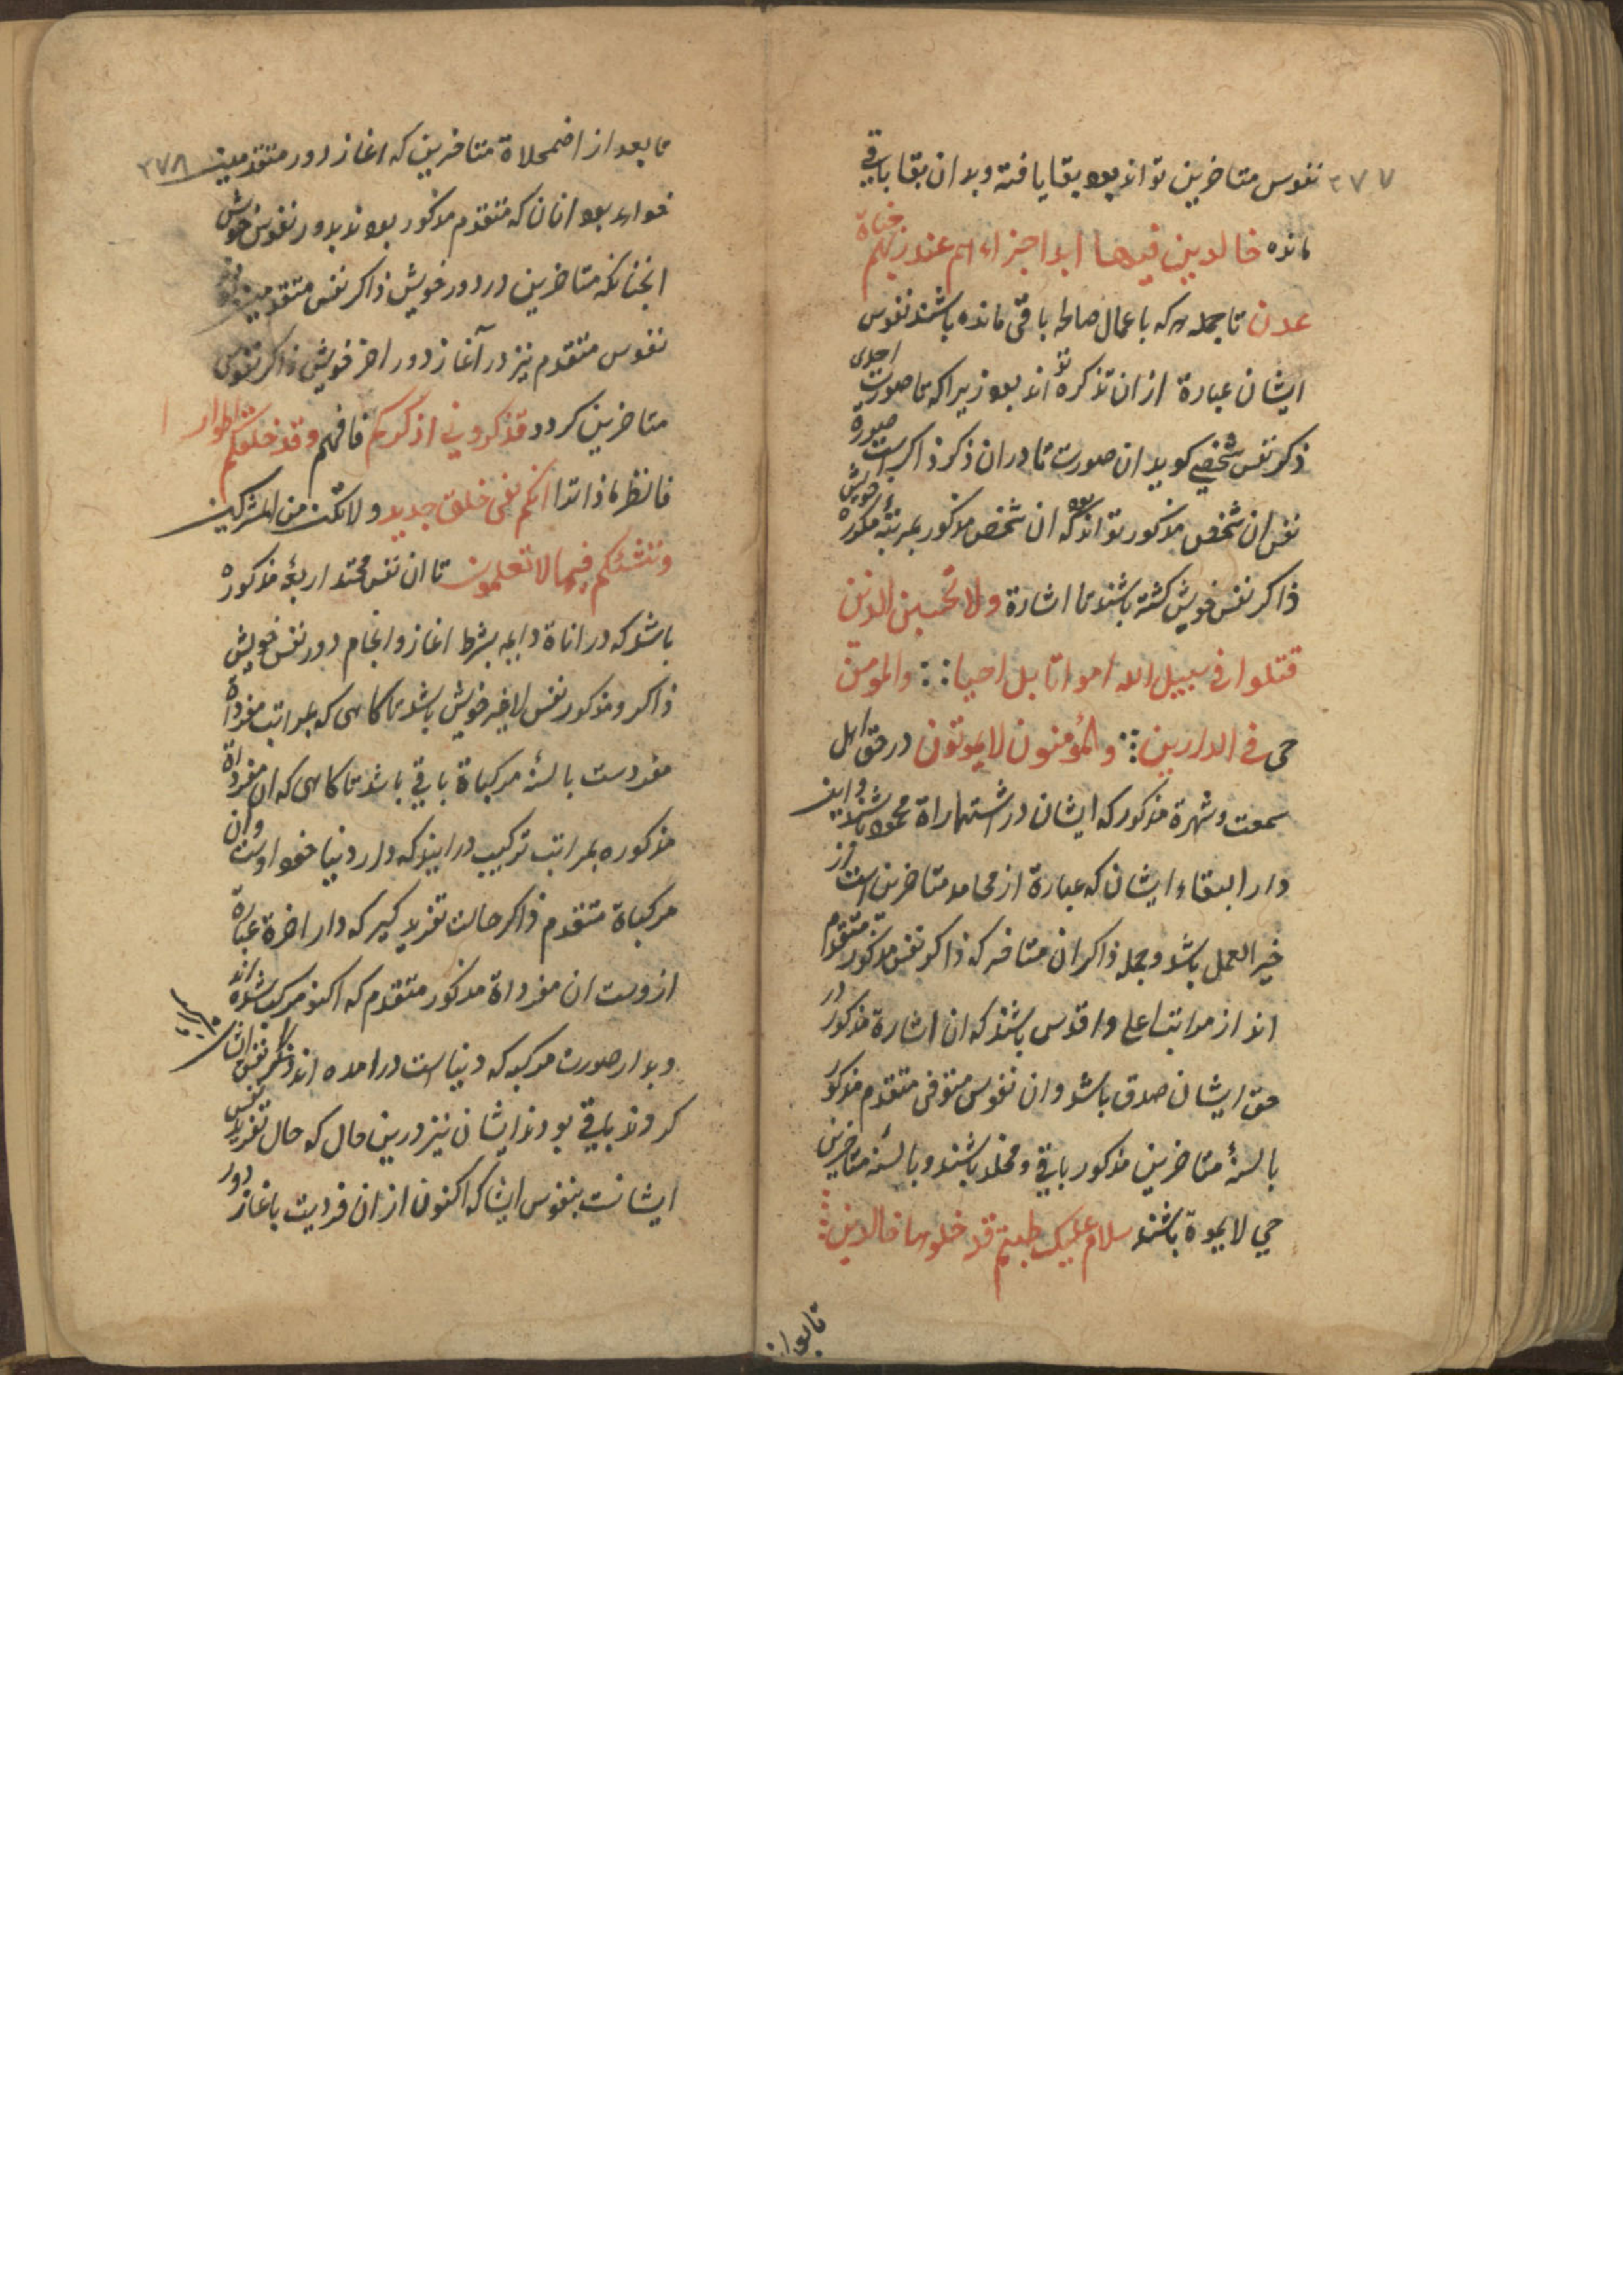 ۳۷۷
نفوس متاخرین تواند بود بقا یافته و بدان بقا باقی
مانده خالدین فیها ابدا جزاءهم عند ربهم جناة
عدن تا جمله هر که با عمال صالحه باقی مانده باشند نفوس
ایشان عبارة از ان تذکره تواند بود زیرا که تا صورت احدی
ذکر نفس شخصی کوید ان صورت تا در ان ذکر ذاکر است صورة
نفس ان شخص مذکور تواند بود که ان شخص مذکور بمرتبه مذکوره خویش
ذاکر نفس خویش کشته باشند تا اشارة ولا تحسبن الذین
قتلوا فی سبیل الله امواتا بل احیا :: والمومن
حی فی الدارین :: والمؤمنون لا یموتون در حق اهل
سمعت و شهرة مذکور که ایشان در اشتهاراة محمود باشند و این
دار البقاء ایشان که عبارة از محامد متاخرین است از
خیر العمل باشد و جمله ذاکران متاخر که ذاکر نفس مذکور متقدم
اند از مراتب اعلی و اقدس باشند که ان اشارة مذکور در
حق ایشان صدق باشد و ان نفوس متوفی متقدم مذکور
بالسنهٔ متاخرین مذکور باقی و مخلد باشند و بالسنهٔ متاخرین
حی لا یموة باشند سلام علیک طبتم قد خلوها خالدین
تا بعد از
۳۷۸
تا بعد از اضمحلاة متاخرین که اغاز دور متقدمین
خواهد بود انان که متقدم مذکور بودند بدور نفوس خویش
انچنانکه متاخرین در دور خویش ذاکر نفس متقدمین
نفوس متقدم نیز در آغاز دور اخر خویش ذاکر نفوس
متاخرین کردد فذکرونی اذکرکم فافهم وقد خلقکم اطوارا
فانظر ماذا تدا انکم نفی خلق جدید و لا تکن من المشرکین
وننشئکم فیما لا تعلمون تا ان نفس محتد اربعهٔ مذکوره
باشد که در اناة دایمه بشرط اغاز و انجام دور نفس خویش
ذاکر و مذکور نفس لاخیر خویش باشد تا کاهی که بمراتب مفرداة
مفردست بالسنهٔ مرکباة باقی باشد تا کاهی که ان مفرداة
مذکوره بمراتب ترکیب در ایند که دار دنیا خود اوست و ان
مرکباة متقدم ذاکر حالت تفرید کیر که دار اخرة عبارة
ازوست ان مفرداة مذکور متقدم که اکنو مرکب شده اند
و بدار صورت مرکبه که دنیا است در امده اند و ذکر نفس ایشان
کردند باقی بودند ایشان نیز درین حال که حال تفرید نفس
ایشانت بنفوس ایشا که اکنون از ان فردیت باغاز دور